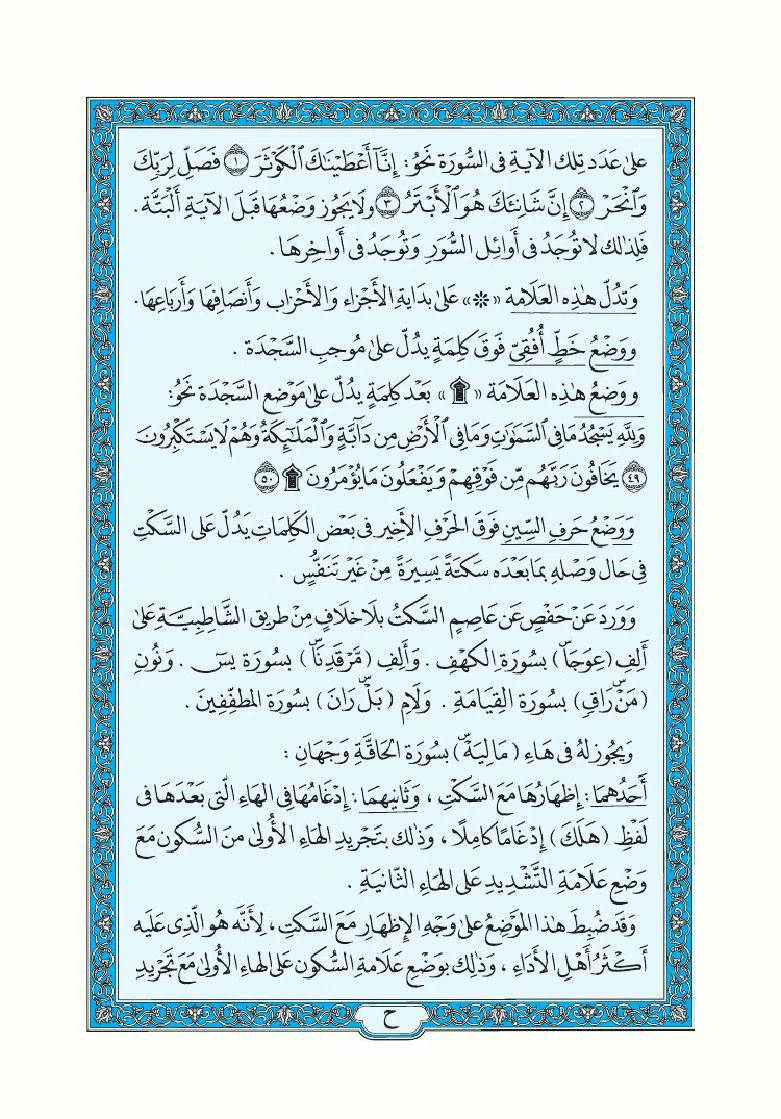 عَلىٰ عَدَدِ تِلكَ الآيَةِ فِى السُّورَةِ نَحوُ: إِنَّآ أَعْطَيْنَٰكَ ٱلْكَوْثَرَ ١ فَصَلِّ لِرَبِّكَ
وَٱنْحَرْ ٢ إِنَّ شَانِئَكَ هُوَ ٱلْأَبْتَرُ ٣ ولَا يَجُوز وَضْعُهَا قَبلَ الآيَةِ أَلْبَتَّة.
فَلِذٰلكَ لا تُوجَدُ فى أَوائِلِ السُّوَرِ وَتُوجَدُ فى أَواخِرِهَا.
وَتَدُلّ هٰذِه العَلَامَة «۞» عَلىٰ بِدَايَةِ الأَجْزَاءِ وَالأَحْزَابِ وَأَنصَافِهَا وَأَربَاعِهَا.
وَوَضْعُ خَطٍّ أُفُقِىٍّ فَوقَ كلِمَةٍ يدُلّ عَلىٰ مُوجبِ السَّجْدَة.
ووَضْعُ هٰذِه العَلَامَة «۩» بَعْدَ كلِمَةٍ يدُلّ عَلىٰ مَوْضِع السَّجْدَة نَحْوُ:
وَلِلَّهِ يَسْجُدُ مَا فِى ٱلسَّمَٰوَٰتِ وَمَا فِى ٱلْأَرْضِ مِن دَآبَّةٍ وَٱلْمَلَٰٓئِكَةُ وَهُمْ لَا يَسْتَكْبِرُونَ
٤٩ يَخَافُونَ رَبَّهُم مِّن فَوْقِهِمْ وَيَفْعَلُونَ مَا يُؤْمَرُونَ ۩ ٥٠
وَوَضْعُ حَرفِ السِّينِ فَوقَ الحَرْفِ الأَخِيرِ فى بَعْضِ الكَلِمَاتِ يَدُلّ عَلى السَّكْتِ
فِى حَال وَصْلِهِ بِمَا بَعْدَه سَكتَةً يَسِيرَةً مِنْ غَيْرِ تَنَفُّسٍ.
وَوَرَدَ عَنْ حَفْصٍ عَن عَاصِمٍ السَّكْتُ بلَا خِلَافٍ مِنْ طريق الشَّاطِبيَّة عَلىٰ
أَلِفِ (عِوَجَاۜ) بسُورَةِ الكَهْفِ. وَأَلِفِ (مَّرْقَدِنَاۜ) بسُورَة يسٓ. وَنُونِ
(مَنْۜ رَاقٍ) بسُورَة القِيَامَةِ. وَلَامِ (بَلْۜ رَانَ) بسُورَة المطَفِّفِينَ.
وَيَجُوز لهُ فى هَاءِ (مَالِيَهْۜ) بسُورَة الحَاقَّةِ وَجْهَانِ:
أَحَدُهُمَا: إظهَارُهَا مَعَ السَّكْتِ، وَثَانِيهِمَا: إدْغَامُهَا فِى الهَاءِ الّتى بَعْدَهَا فى
لَفْظِ (هَلَكَ) إدْغَامًا كامِلًا، وَذٰلك بتَجْريدِ الهَاءِ الأُولىٰ مِنَ السُّكون مَعَ
وَضْعِ عَلَامَةِ التَّشْدِيدِ عَلى الهَاءِ الثّانيَةِ.
وَقَد ضُبِطَ هٰذا المَوْضِعُ عَلىٰ وَجْهِ الإظهَارِ مَعَ السَّكتِ، لِأَنَّه هُو الّذى عَلَيه
أَكثَرُ أَهْلِ الأَدَاءِ، وَذٰلِك بوَضْعِ عَلَامةِ السُّكون عَلى الهَاءِ الأُولىٰ مَعَ تجْرِيدِ
ح